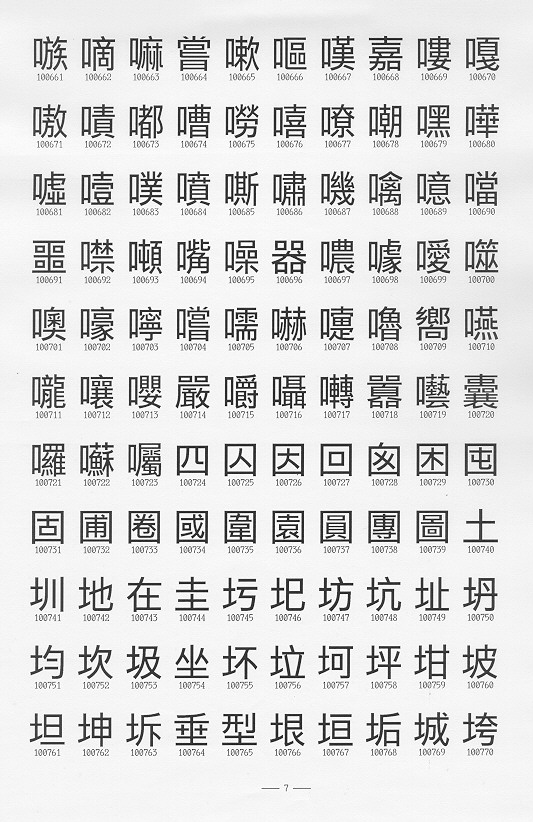 嗾 嘀 嘛 嘗 嗽 嘔 嘆 嘉 嘍 嘎
100661 100662 100663 100664 100665 100666 100667 100668 100669 100670
嗷 嘖 嘟 嘈 嘮 嘻 嘹 嘲 嘿 嘩
100671 100672 100673 100674 100675 100676 100677 100678 100679 100680
噓 噎 噗 噴 嘶 嘯 嘰 噙 噫 噹
100681 100682 100683 100684 100685 100686 100687 100688 100689 100690
噩 噤 噸 嘴 噪 器 噥 噱 噯 噬
100691 100692 100693 100694 100695 100696 100697 100698 100699 100700
噢 嚎 嚀 嚐 嚅 嚇 嚏 嚕 嚮 嚥
100701 100702 100703 100704 100705 100706 100707 100708 100709 100710
嚨 嚷 嚶 嚴 嚼 囁 囀 囂 囈 囊
100711 100712 100713 100714 100715 100716 100717 100718 100719 100720
囉 囌 囑 四 囚 因 回 囪 困 囤
100721 100722 100723 100724 100725 100726 100727 100728 100729 100730
固 圃 圈 國 圍 園 圓 團 圖 土
100731 100732 100733 100734 100735 100736 100737 100738 100739 100740
圳 地 在 圭 圬 圯 坊 坑 址 坍
100741 100742 100743 100744 100745 100746 100747 100748 100749 100750
均 坎 圾 坐 坏 垃 坷 坪 坩 坡
100751 100752 100753 100754 100755 100756 100757 100758 100759 100760
坦 坤 坼 垂 型 垠 垣 垢 城 垮
100761 100762 100763 100764 100765 100766 100767 100768 100769 100770
— 7 —